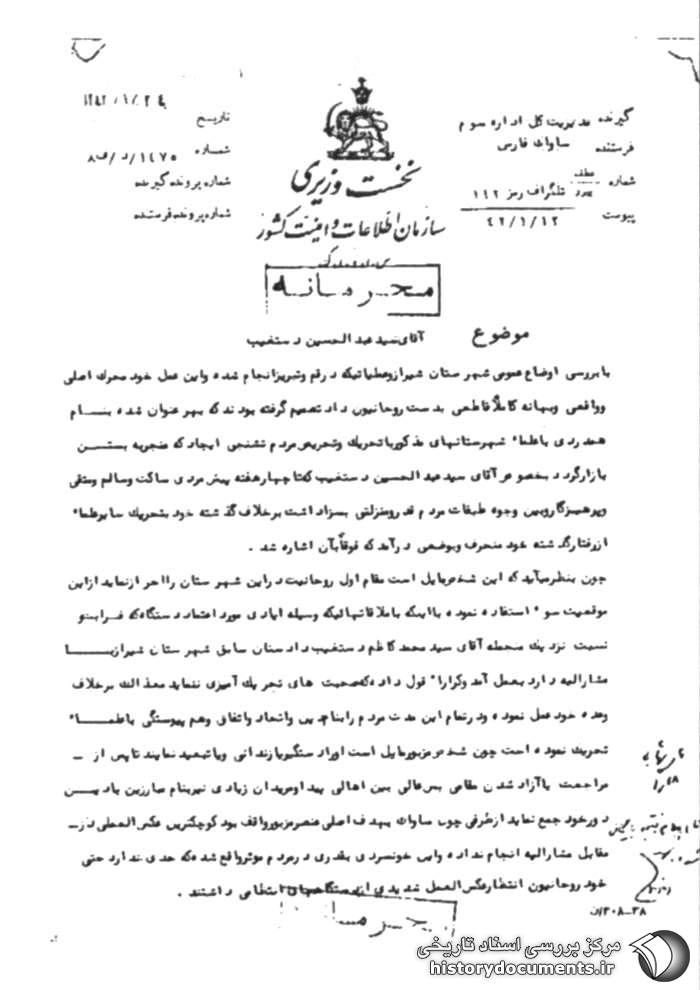 گیرنده مدیریت کل اداره سوم
فرستنده ساواک فارس
شماره عطف تلگراف رمز ۱۱۲
پیوست ۴۲/۱/۱۲
نخست وزیری
سازمان اطلاعات و امنیت کشور
تاریخ ۱۳۴۲/۱/۲۴
شماره ۱۴۷۵/د/ف۸
شماره پرونده گیرنده
شماره پرونده فرستنده
محرمانه
موضوع آقای سید عبدالحسین دستغیب
با بررسی اوضاع عمومی شهرستان شیراز و عملیاتیکه در قم و تبریز انجام شده و این عمل خود محرک اصلی
وواقعی و بهانه کاملا قاطعی بدست روحانیون داد تصمیم گرفته بودند که بهر عنوان شده بنام
همدردی با علماء شهرستانهای مذکور با تحریک و تحریص مردم تشنجی ایجاد که منجر به بستن
بازار گردد بخصوص آقای سید عبدالحسین دستغیب که تا چهار هفته پیش مردی ساکت و سالم و متقی
و پرهیزگار و بین وجوه طبقات مردم قدر و منزلتی بسزا داشت برخلاف گذشته خود بتحریک سایر علماء
از رفتار گذشته خود منحرف و بوضعی درآمد که فوقاً بآن اشاره شد .
چون بنظر میآید که این شخص مایل است مقام اول روحانیت در این شهرستان را احراز نماید از این
موقعیت سوء استفاده نموده با اینکه با ملاقاتهائیکه وسیله ایادی مورد اعتماد دستگاه که
نسبت نزدیک منجمله آقای سید محمد کاظم دستغیب دادستان سابق شهرستان شیراز با
مشارالیه دارد بعمل آمد و کرارا قول داده که صحبت های تحریک آمیزی ننماید معذالک برخلاف
وعده خود عمل نموده و در تمام این مدت مردم را بنام دین و اتحاد و اتفاق و هم پیوستگی با علماء
تحریک نموده است چون شخص مزبور مایل است او را دستگیر یا زندانی و یا تبعید نمایند تا پس از
مراجعت یا آزاد شدن مقامی بس عالی بین اهالی پیدا و مریدان زیادی نیز بنام مبارزین با دین
دور خود جمع نماید از طرفی چون ساواک بهدف اصلی عنصر مزبور واقف بود کوچکترین عکس العملی در
مقابل مشارالیه انجام نداده و این خونسردی بقدری در مردم موثر واقع شده که حدی ندارد حتی
خود روحانیون انتظار عکس العمل شدیدی از دستگاههای انتظامی داشتند .
محرمانه
۳۸-۳۰۸/ن
مرکز بررسی اسناد تاریخی
historydocuments.ir